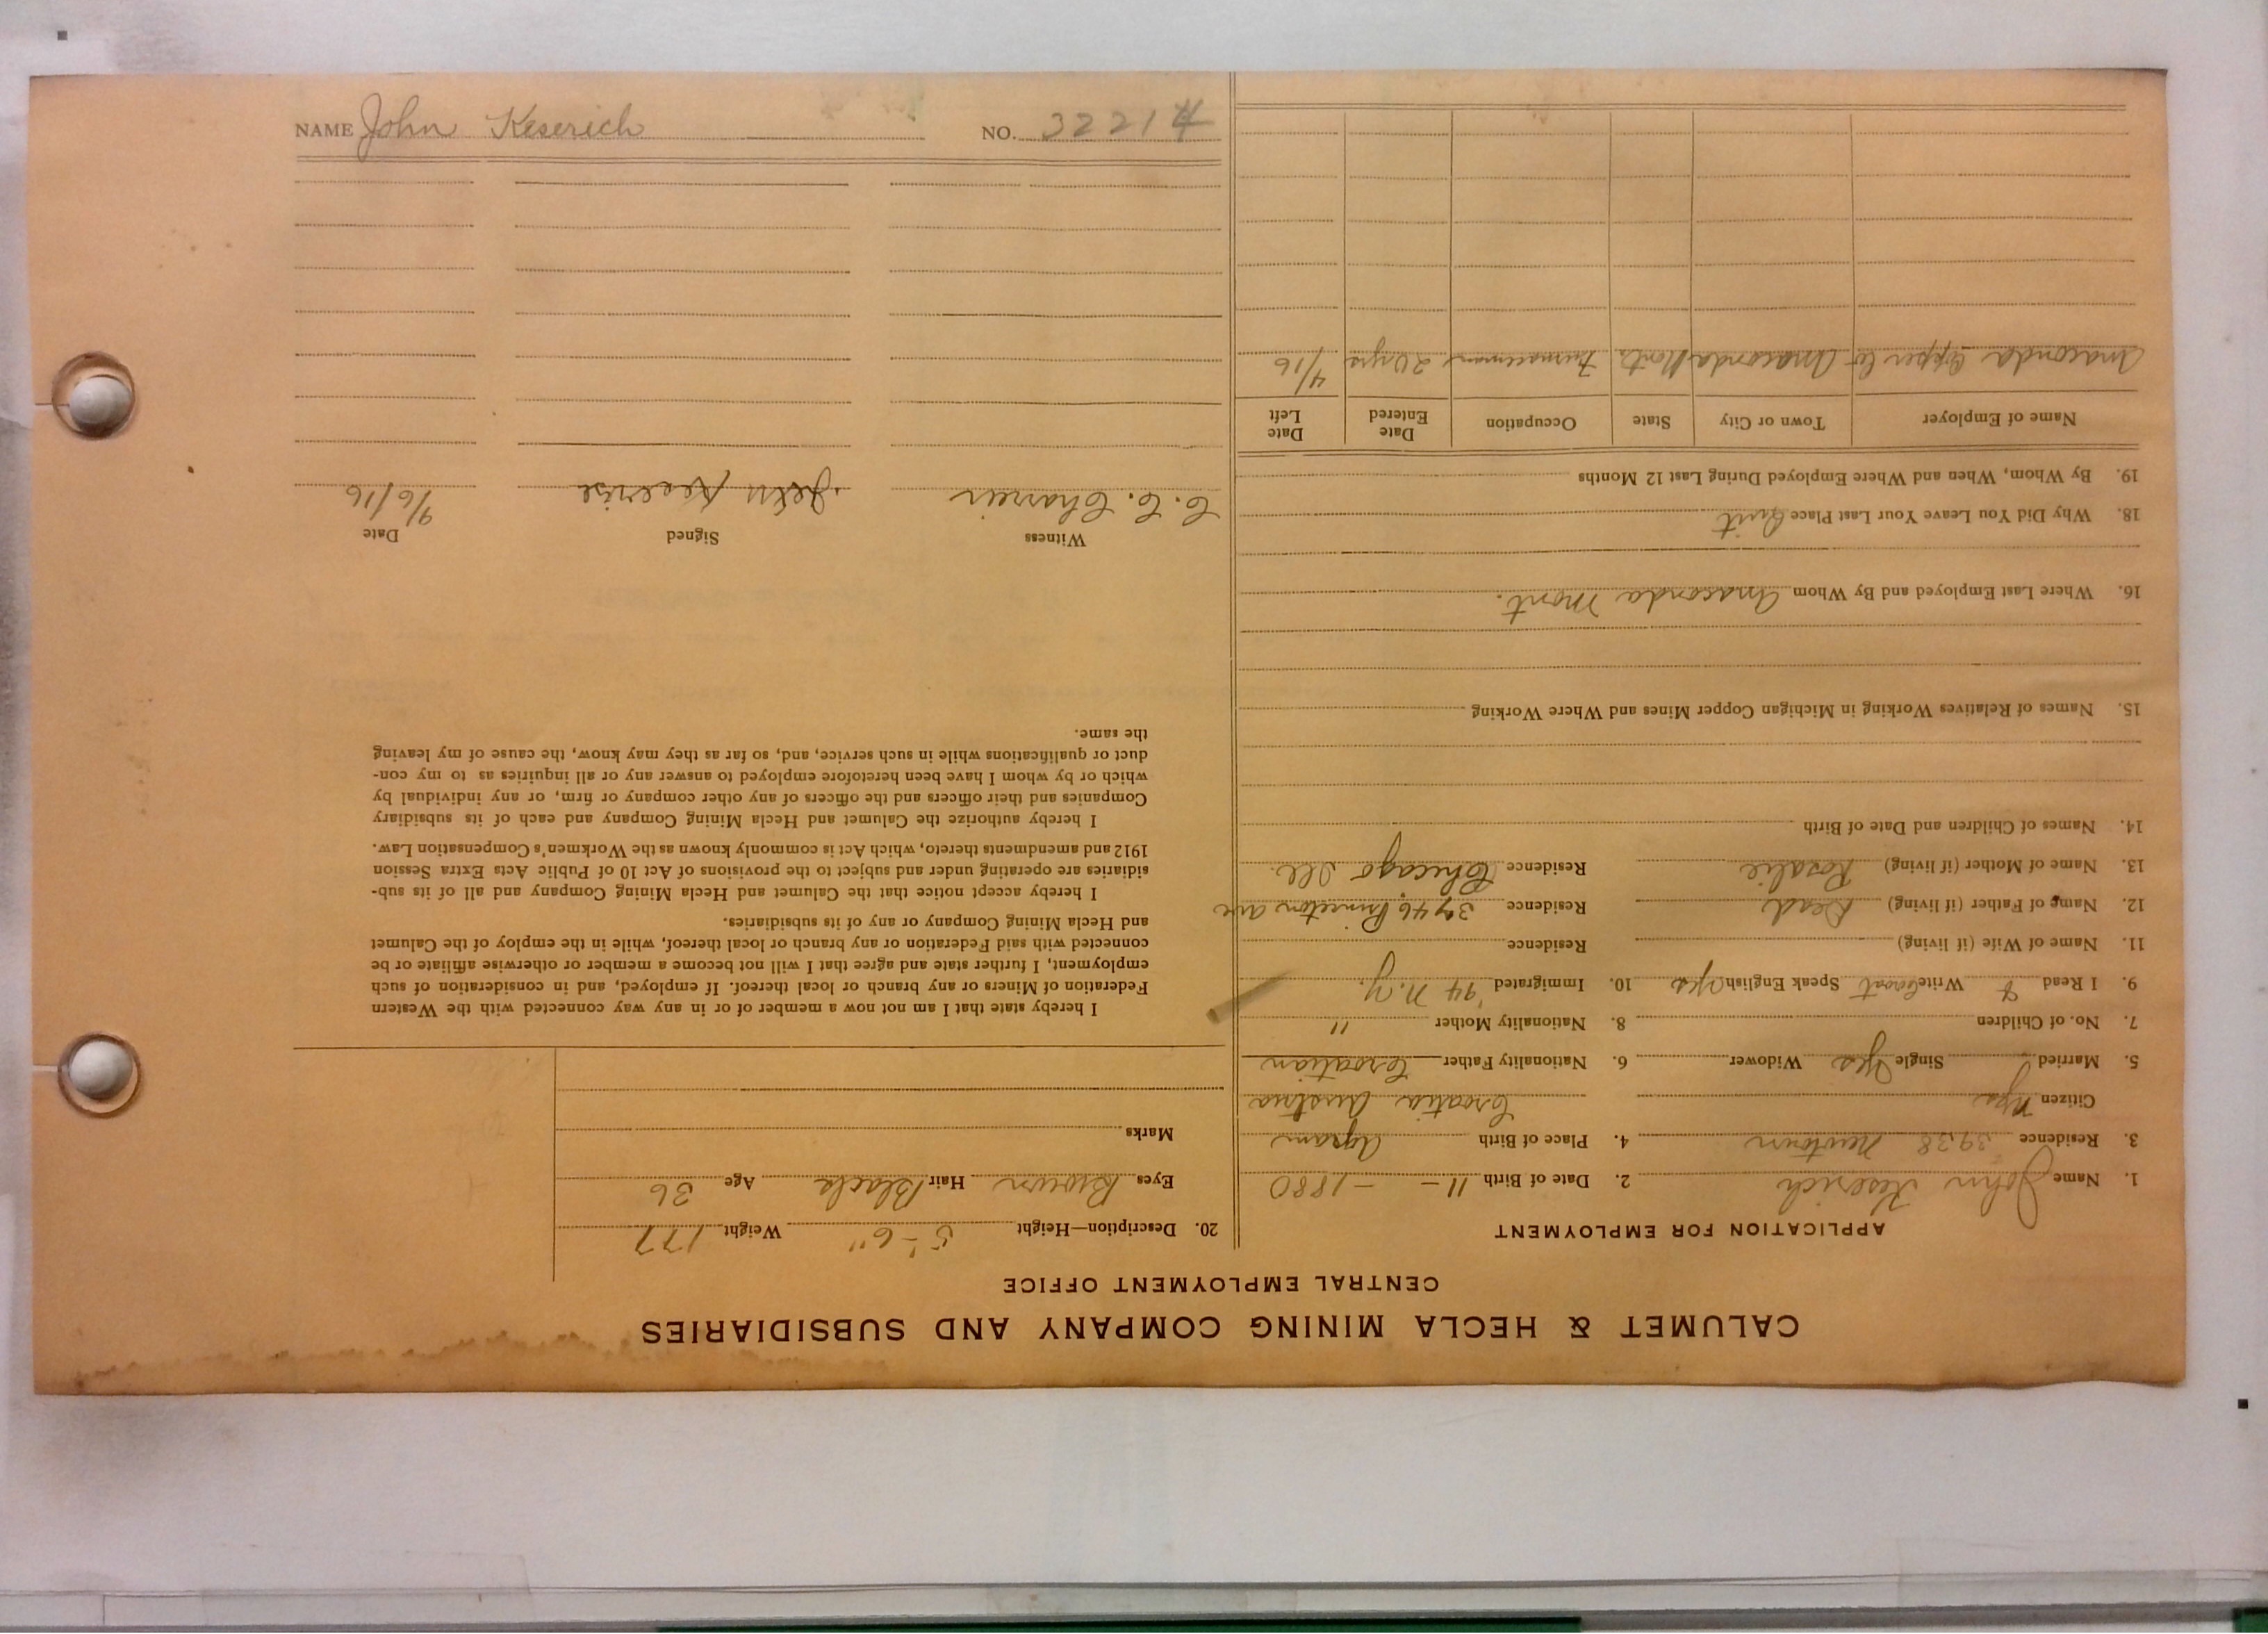 CALUMET & HECLA MINING COMPANY AND SUBSIDIARIES
CENTRAL EMPLOYMENT OFFICE
APPLICATION FOR EMPLOYMENT
1. Name John Keserich 2. Date of Birth 11 – – 1880
3. Residence 3938 Newtown 4. Place of Birth Agram
Citizen Yes Croatia Austria
5. Married Single Yes Widower 6. Nationality Father Croatian
7. No. of Children 8. Nationality Mother "
9. I Read & Write Croat Speak English Yes 10. Immigrated '94 N.Y.
11. Name of Wife (if living) Residence
12. Name of Father (if living) Dead Residence 3746 Princeton ave
13. Name of Mother (if living) Rosalie Residence Chicago Ill.
14. Names of Children and Date of Birth
15. Names of Relatives Working in Michigan Copper Mines and Where Working
16. Where Last Employed and By Whom Anaconda Mont.
18. Why Did You Leave Your Last Place Quit
19. By Whom, When and Where Employed During Last 12 Months
Name of Employer Town or City State Occupation Date Entered Date Left
Anaconda Copper Co Anaconda Mont. Furnaceman 20 yrs 4/16
20. Description—Height 5'-6" Weight 177
Eyes Brown Hair Black Age 36
Marks
I hereby state that I am not now a member of or in any way connected with the Western
Federation of Miners or any branch or local thereof. If employed, and in consideration of such
employment, I further state and agree that I will not become a member or otherwise affiliate or be
connected with said Federation or any branch or local thereof, while in the employ of the Calumet
and Hecla Mining Company or any of its subsidiaries.
I hereby accept notice that the Calumet and Hecla Mining Company and all of its sub-
sidiaries are operating under and subject to the provisions of Act 10 of Public Acts Extra Session
1912 and amendments thereto, which Act is commonly known as the Workmen's Compensation Law.
I hereby authorize the Calumet and Hecla Mining Company and each of its subsidiary
Companies and their officers and the officers of any other company or firm, or any individual by
which or by whom I have been heretofore employed to answer any or all inquiries as to my con-
duct or qualifications while in such service, and, so far as they may know, the cause of my leaving
the same.
Witness Signed Date
C. C. John 9/6/16
NAME John Keserich NO. 32214